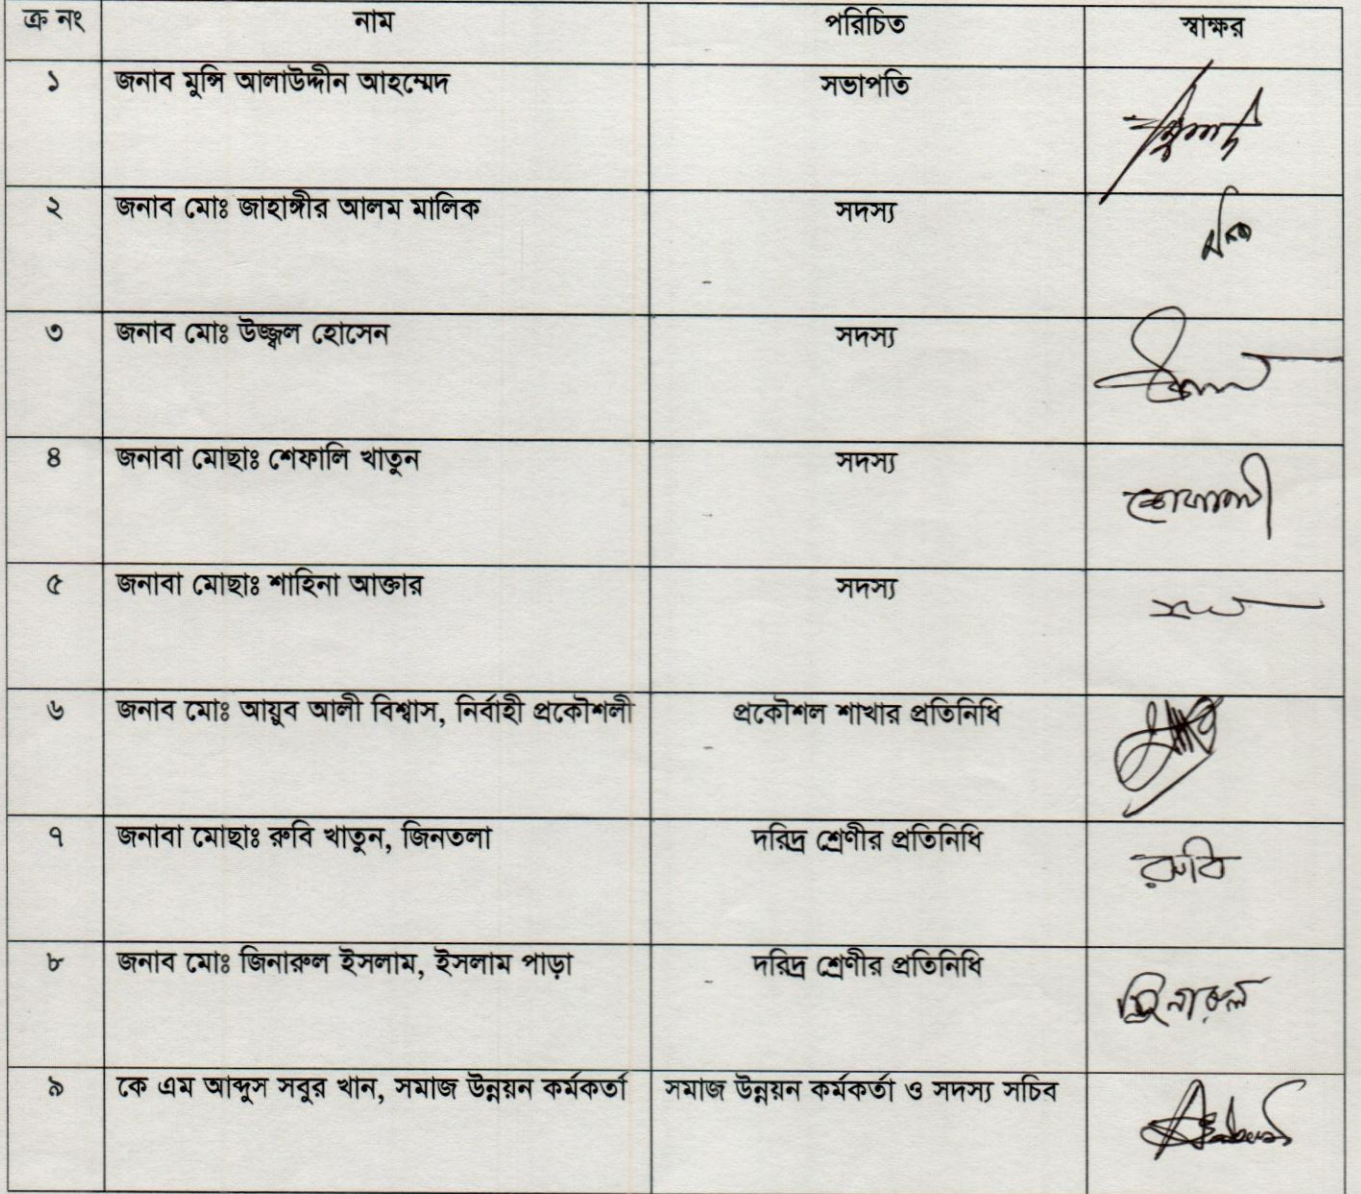 ক্র নং নাম পরিচিত স্বাক্ষর
১ জনাব মুন্সি আলাউদ্দীন আহম্মেদ সভাপতি
২ জনাব মোঃ জাহাঙ্গীর আলম মালিক সদস্য
৩ জনাব মোঃ উজ্জ্বল হোসেন সদস্য
৪ জনাবা মোছাঃ শেফালি খাতুন সদস্য
৫ জনাবা মোছাঃ শাহিনা আক্তার সদস্য
৬ জনাব মোঃ আয়ুব আলী বিশ্বাস, নির্বাহী প্রকৌশলী প্রকৌশল শাখার প্রতিনিধি
৭ জনাবা মোছাঃ রুবি খাতুন, জিনতলা দরিদ্র শ্রেণীর প্রতিনিধি রুবি
৮ জনাব মোঃ জিনারুল ইসলাম, ইসলাম পাড়া দরিদ্র শ্রেণীর প্রতিনিধি জিনারুল
৯ কে এম আব্দুস সবুর খান, সমাজ উন্নয়ন কর্মকর্তা সমাজ উন্নয়ন কর্মকর্তা ও সদস্য সচিব